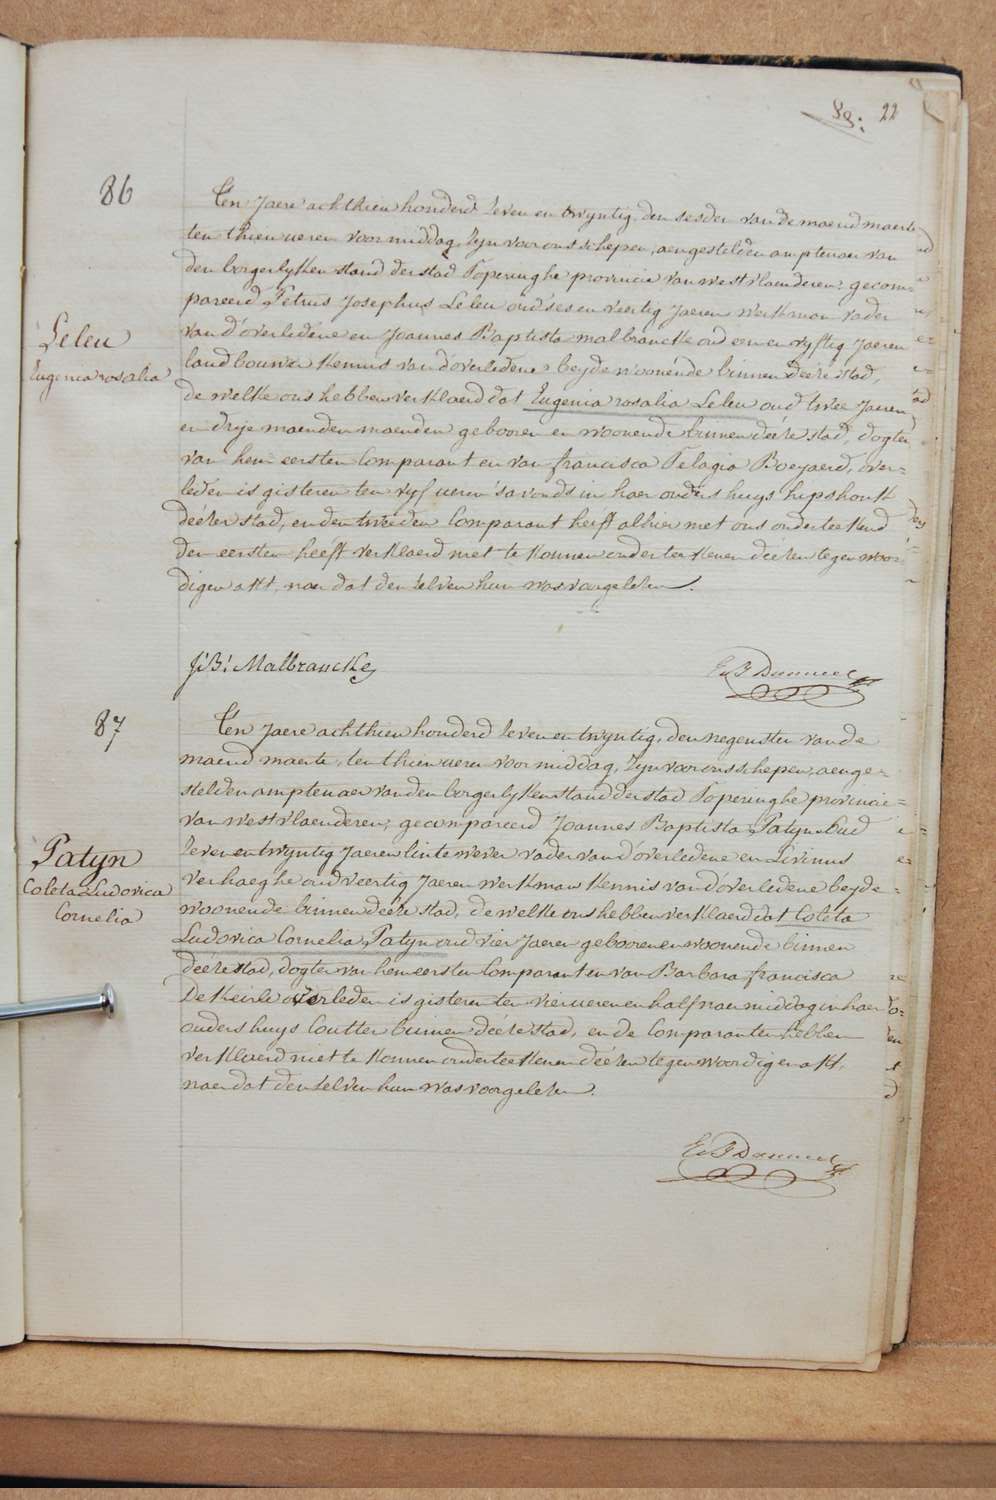 22
86
Ten Jaere achthien honderd zeven en twyntig den sesden van de maend maerte
ten thien ueren voormiddag, Zyn voor ons schepen, aengestelden amptenaer van
den borgerlyken stand der stad Poperinghe provincie van westvlaenderen; gecom=
pareerd Petrus Josephus Leleu oud ses en veertig Jaeren werkman vader
van d'overledene en Joannes Baptista malbrancke oud een en vyftig Jaeren
landbouwer Kennis van d'overledene beyde woonende binnen deéze stad,
de welke ons hebben verklaerd dat Eugenia rosalia Leleu oud twee Jaeren
en drye maenden maenden gebooren en woonende binnen deéze stad, dogter
van hem eersten Comparant en van francisca Pelagia Boeyaerd, over=
leden is gisteren ten vyf ueren s'avonds in haer ouders huys hipshouk
deézer stad, en den tweeden Comparant heeft alhier met ons onderteekend
den eersten heeft verklaerd niet te Konnen onderteekenen deézen tegenwoor=
digen akt, naer dat den zelven hun was voorgelezen.
Leleu
Eugenia rosalia
J:B: Malbrancke
87
Ten Jaere achthien honderd zeven en twyntig, den negensten van de
maend maerte, ten thien ueren voormiddag, Zyn voor ons schepen, aenge=
stelden amptenaer van den borgerlyken stand der stad Poperinghe provincie
van westvlaenderen; gecompareerd Joannes Baptista Patyn oud
zeven en twyntig Jaeren lintewever vader van d'overledene en Livinus
verhaeghe oud veertig Jaeren werkman Kennis van d'overledene beyde
woonende binnen deéze stad, de welke ons hebben verklaerd dat Coleta
Ludovica Cornelia Patyn oud vier Jaeren gebooren en woonende binnen
deéze stad, dogter van hem eersten Comparant en van Barbara francisca
De Keirle overleden is gisteren ten vier ueren en half naermiddag in haer
ouders huys Coutter binnen deéze stad, en de Comparanten hebben
verklaerd niet te Konnen onderteekenen deézen tegenwoordigen akt,
naer dat den zelven hun was voorgelezen.
Patyn
Coleta Ludovica
Cornelia